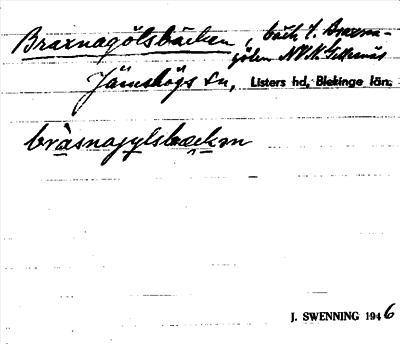 Braxnagölsbäcken, bäck t. Braxna-
gölen NV K. Gillesnäs
Jämshögs sn, Listers hd, Blekinge län.
bràsnajylsbæckən
J. SWENNING 1946